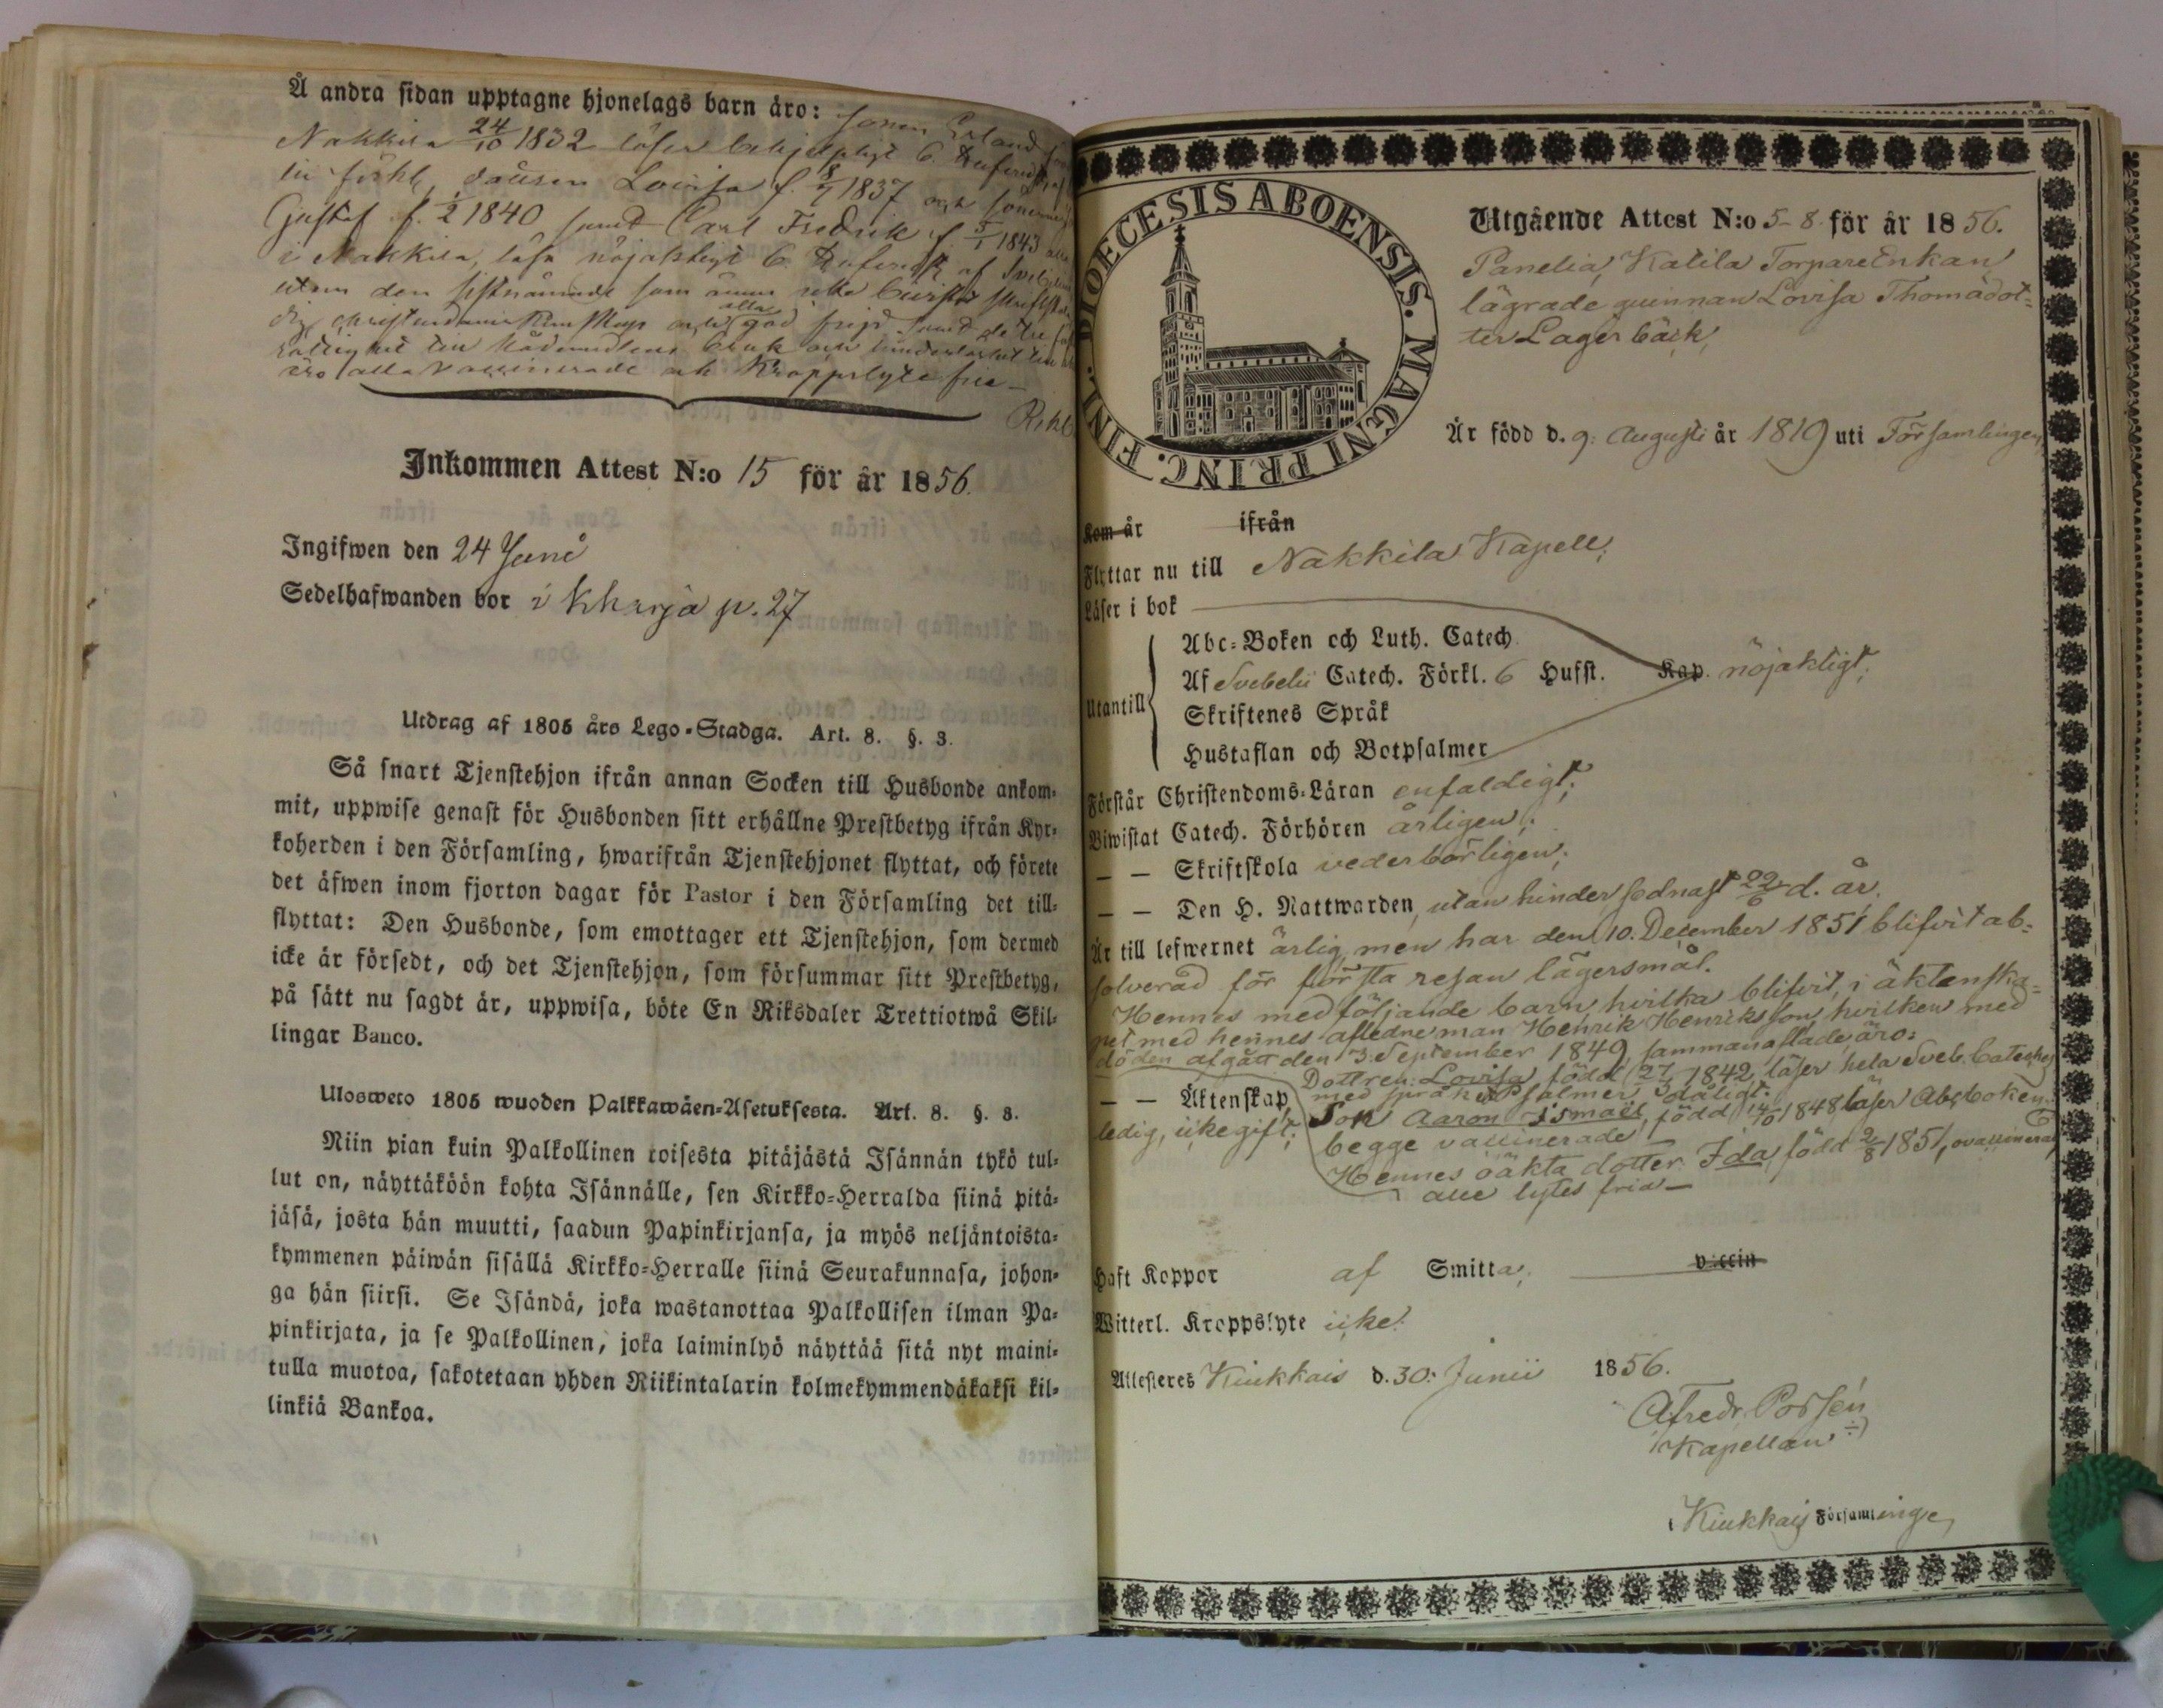 Å andra sidan upptagne hjonelags barn äro: sonen Erland
Nakkila 24/10 1832 läser behjelpligt 6 Hufvudst. af
Lovisa f. 18/7 1837 och sonen
Gustaf f. 1/2 1840 samt Carl Fredrik f. 5/1 1843 alla
i Nakkila, läsa nöjaktigt 6 Hufvudst. af Svebelii
utom den sistnämnde som ännu icke bevistat
alla
god frejd samt de tre
nådemedlens bruk och
äro alla vaccinerade och Kroppslyte fria —
Inkommen Attest N:o 15 för år 1856.
Ingifwen den 24 Juni
Sedelhafwanden bor i Kharja p. 27
Utdrag af 1805 års Lego-Stadga. Art. 8. §. 3.
Så snart Tjenstehjon ifrån annan Socken till Husbonde ankom-
mit, uppwise genast för Husbonden sitt erhållne Prestbetyg ifrån Kyr-
koherden i den Församling, hwarifrån Tjenstehjonet flyttat, och förete
det äfwen inom fjorton dagar för Pastor i den Församling det till-
flyttat: Den Husbonde, som emottager ett Tjenstehjon, som dermed
icke är försedt, och det Tjenstehjon, som försummar sitt Prestbetyg,
på sätt nu sagdt är, uppwisa, böte En Riksdaler Trettiotwå Skil-
lingar Banco.
Ulosweto 1805 wuoden Palkkawäen-Asetuksesta. Art. 8. §. 3.
Niin pian kuin Palkollinen toisesta pitäjästä Isännän tykö tul-
lut on, näyttäköön kohta Isännälle, sen Kirkko-Herralda siinä pitä-
jäsä, josta hän muutti, saadun Papinkirjansa, ja myös neljäntoista-
kymmenen päiwän sisällä Kirkko-Herralle siinä Seurakunnasa, johon-
ga hän siirsi. Se Isändä, joka wastanottaa Palkollisen ilman Pa-
pinkirjata, ja se Palkollinen, joka laiminlyö näyttää sitä nyt maini-
tulla muotoa, sakotetaan yhden Riikintalarin kolmekymmendäkaksi kil-
linkiä Bankoa.
DIOECESIS ABOENSIS. MAGNI PRINC. FINL.
Utgående Attest N:o 58 för år 1856.
Panelia, Katila TorpareEnkan,
lägrade quinnan Lovisa Thomädot-
ter Lagerbäck,
Är född d. 9. Augusti år 1819 uti Församlingen,
Kom år ifrån
Flyttar nu till Nakkila Kapell;
Läser i bok
Abc-Boken och Luth. Catech.
Utantill Af Svebelii Catech. Förkl. 6 Hufst. Kap. nöjaktligt;
Skriftenes Språk
Hustaflan och Botpsalmer
Förstår Christendoms-Läran enfaldigt;
Biwistat Catech. Förhören årligen;
— — Skriftskola vederbörligen;
— — Den H. Nattwarden, utan hinder sednast 22/6 d. år.
Är till lefwernet ärlig, men har den 10. December 1851 blifvit ab-
solverad för första resan lägersmål.
Hennes medföljande barn, hvilka blifvit, i äktenska-
pet med hennes afledne man Henrik Henriksson, hvilken med
döden afgått den 3. September 1849, sammanaflade, äro:
Dottren: Lovisa, född 27/3 1842, läser hela Sveb. Cateches
med språk o. Psalmer dåligt.
— — Äktenskap, Son Aaron Ismael, född 14/10 1848 läser Abcboken.
ledig, icke gift; begge vaccinerade
Hennes oäkta dotter Ida, född 2/8 1851, ovaccinerad,
alle lytes fria —
Haft Koppor af Smitta, vaccin
Witterl. Kroppslyte icke.
Attesteres Kiukkais d. 30. Junii 1856.
Alfredr. Porsén
Kapellan
i Kiukkais Församlinge